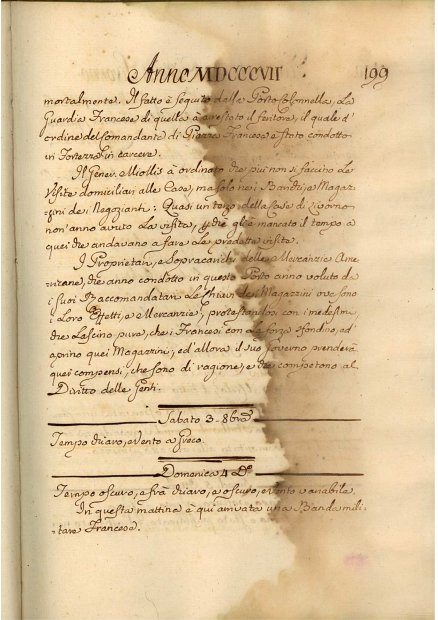 Anno MDCCCVII 199
mortalmente. Il fatto è seguito dalla Porto Colonnella, La
Guardia Francese di quella à arrestato il feritore, il quale d'
ordine del Comandante di Piazza Francese è stato condotto
in Fortezza in carcere.
Il Gener. Miollis à ordinato che più non si faccino Le
Visite domiciliari alle Case, ma solo nei Bandi, e Magaz-
zini de Negozianti: Quasi un terzo delle Case di Livorno
non anno avuto La visita, che gli è mancato il tempo a
quei che andavano a fare Le predette visite.
I Proprietari, e Sopracarichi delle Mercanzie Ame-
ricane, che anno condotto in questo Porto anno voluto da
i suoi Raccomandatari Le Chiavi de Magazzini ove sono
i Loro Effetti, e Mercanzie, protestandosi con i medesimi,
che Lascino pure, che i Francesi con La forza sfondino, ed
aprino quei Magazzini, ed allora il suo Governo prenderà
quei compensi, che sono di ragione, e che competono al
Diritto delle Genti.
Sabato 3. 8bre
Tempo chiaro, e vento a Greco.
Domenica 4 Do
Tempo oscuro, e frà chiaro, e oscuro, e vento variabile.
In questa mattina è qui arrivata una Banda mili-
tare Francese.